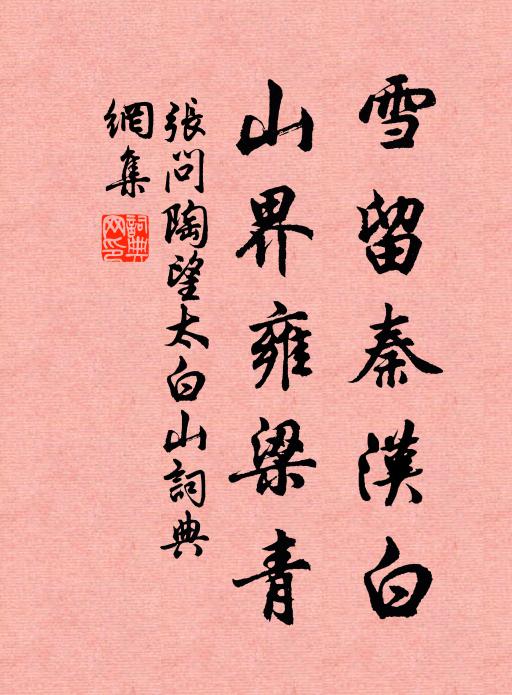 雪留秦漢白
山界雍梁青
張問陶望太白山詞典
網集
詞典
网印